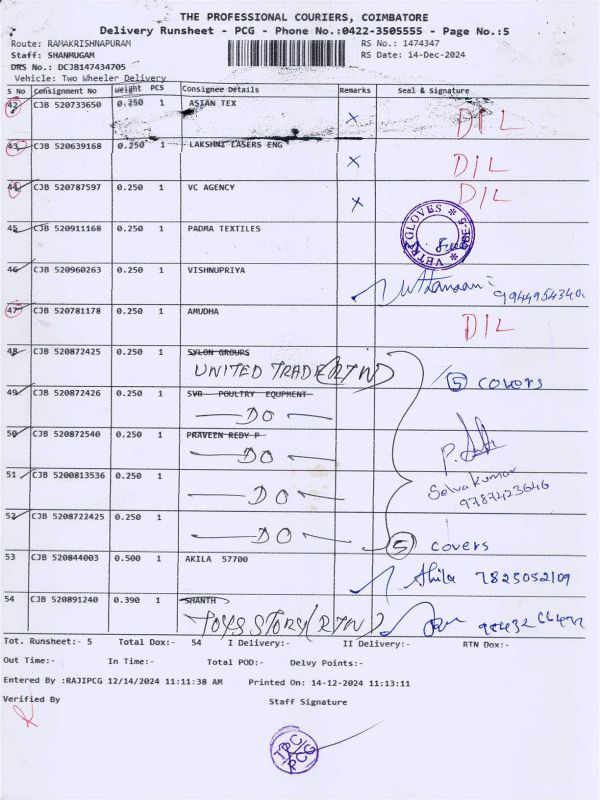 THE PROFESSIONAL COURIERS, COIMBATORE
Delivery Runsheet - PCG - Phone No.:0422-3505555 - Page No.:5
Route: RAMAKRISHNAPURAM RS No.: 1474347
Staff: SHANMUGAM RS Date: 14-Dec-2024
DRS No.: DCJB147434705
Vehicle: Two Wheeler Delivery
S No Consignment No Weight PCS Consignee Details Remarks Seal & Signature
42 CJB 520733650 0.250 1 ASIAN TEX x D/L
43 CJB 520639168 0.250 1 LAKSHMI LASERS ENG x D/L
44 CJB 520787597 0.250 1 VC AGENCY x D/L
45 CJB 520911168 0.250 1 PADMA TEXTILES
VETRI GLOVES
46 CJB 520960263 0.250 1 VISHNUPRIYA
47 CJB 520781178 0.250 1 AMUDHA D/L
48 CJB 520872425 0.250 1 SYLON GROUPS
UNITED TRADE (RTN) 5 covers
49 CJB 520872426 0.250 1 SVR POULTRY EQUPMENT
DO
50 CJB 520872540 0.250 1 PRAVEEN REDY P
DO
51 CJB 5200813536 0.250 1
DO Selvakumar
9787423646
52 CJB 5208722425 0.250 1
DO 5 covers
53 CJB 520844003 0.500 1 AKILA 57700 Ahila 7825052109
54 CJB 520891240 0.390 1 SHANTH
TOYS STORY (RTN)
Tot. Runsheet:- 5 Total Dox:- 54 I Delivery:- II Delivery:- RTN Dox:-
Out Time:- In Time:- Total POD:- Delvy Points:-
Entered By :RAJIPCG 12/14/2024 11:11:38 AM Printed On: 14-12-2024 11:13:11
Verified By Staff Signature
TPC/PCG